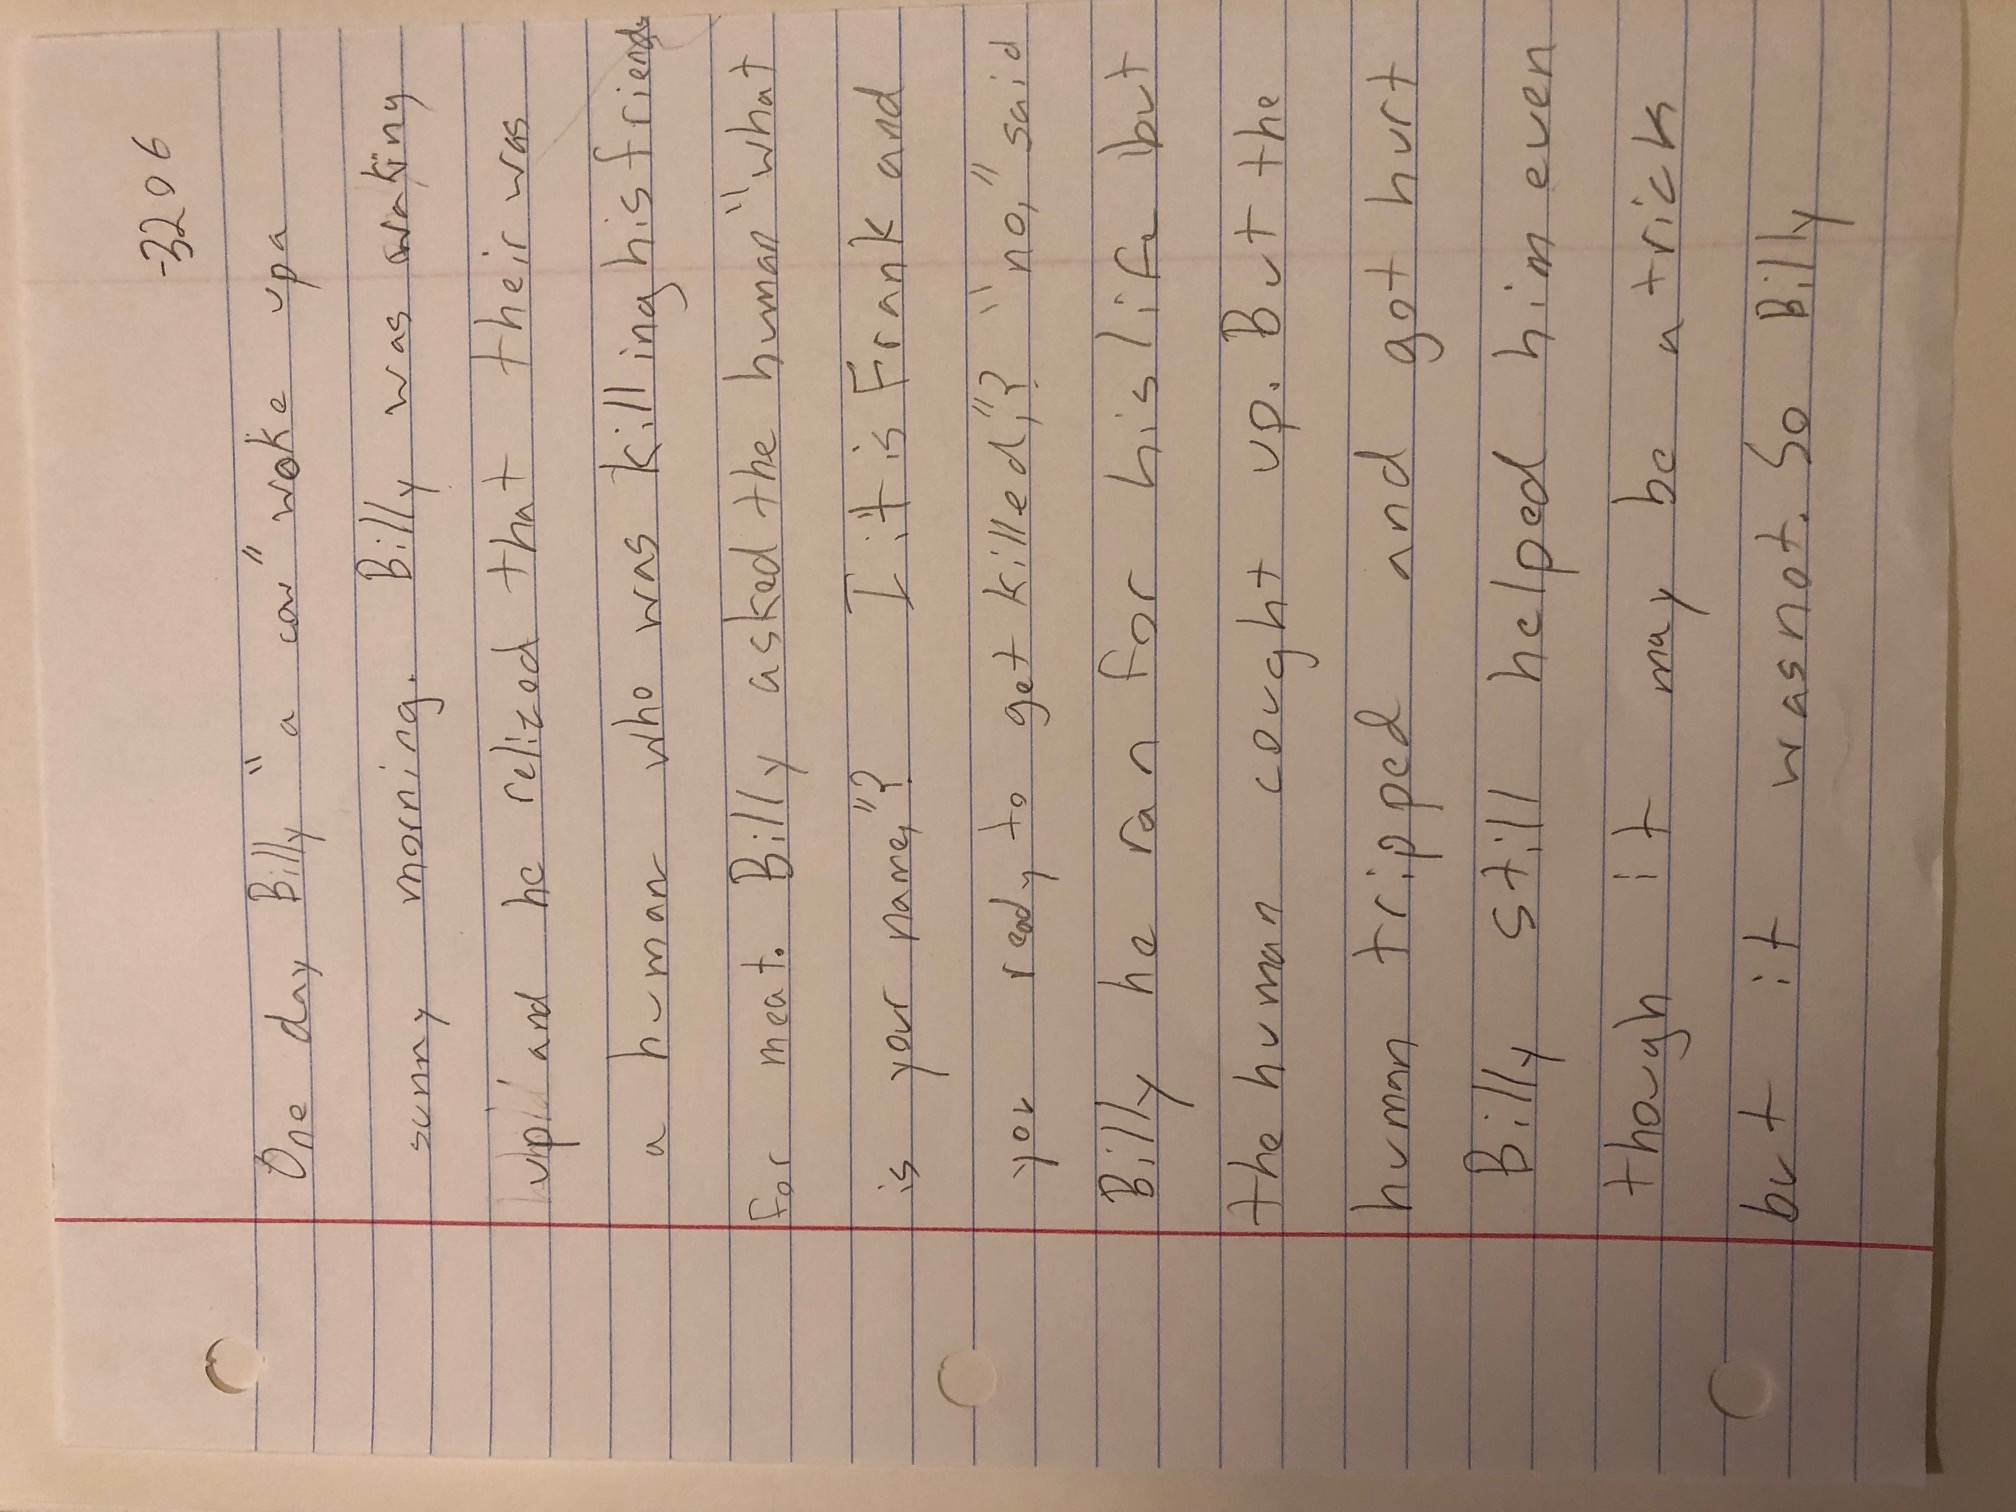 -3206
One day Billy "a cow" woke up a
sunny morning. Billy was waking
up and he relized that their was
a human who was killing his friends
for meat. Billy asked the human "what
is your name,"? I it is Frank and
you ready to get killed,"? "no," said
Billy he ran for his life but
the human cought up. But the
human tripped and got hurt
Billy still helped him even
though it may be a trick
but it was not. So Billy